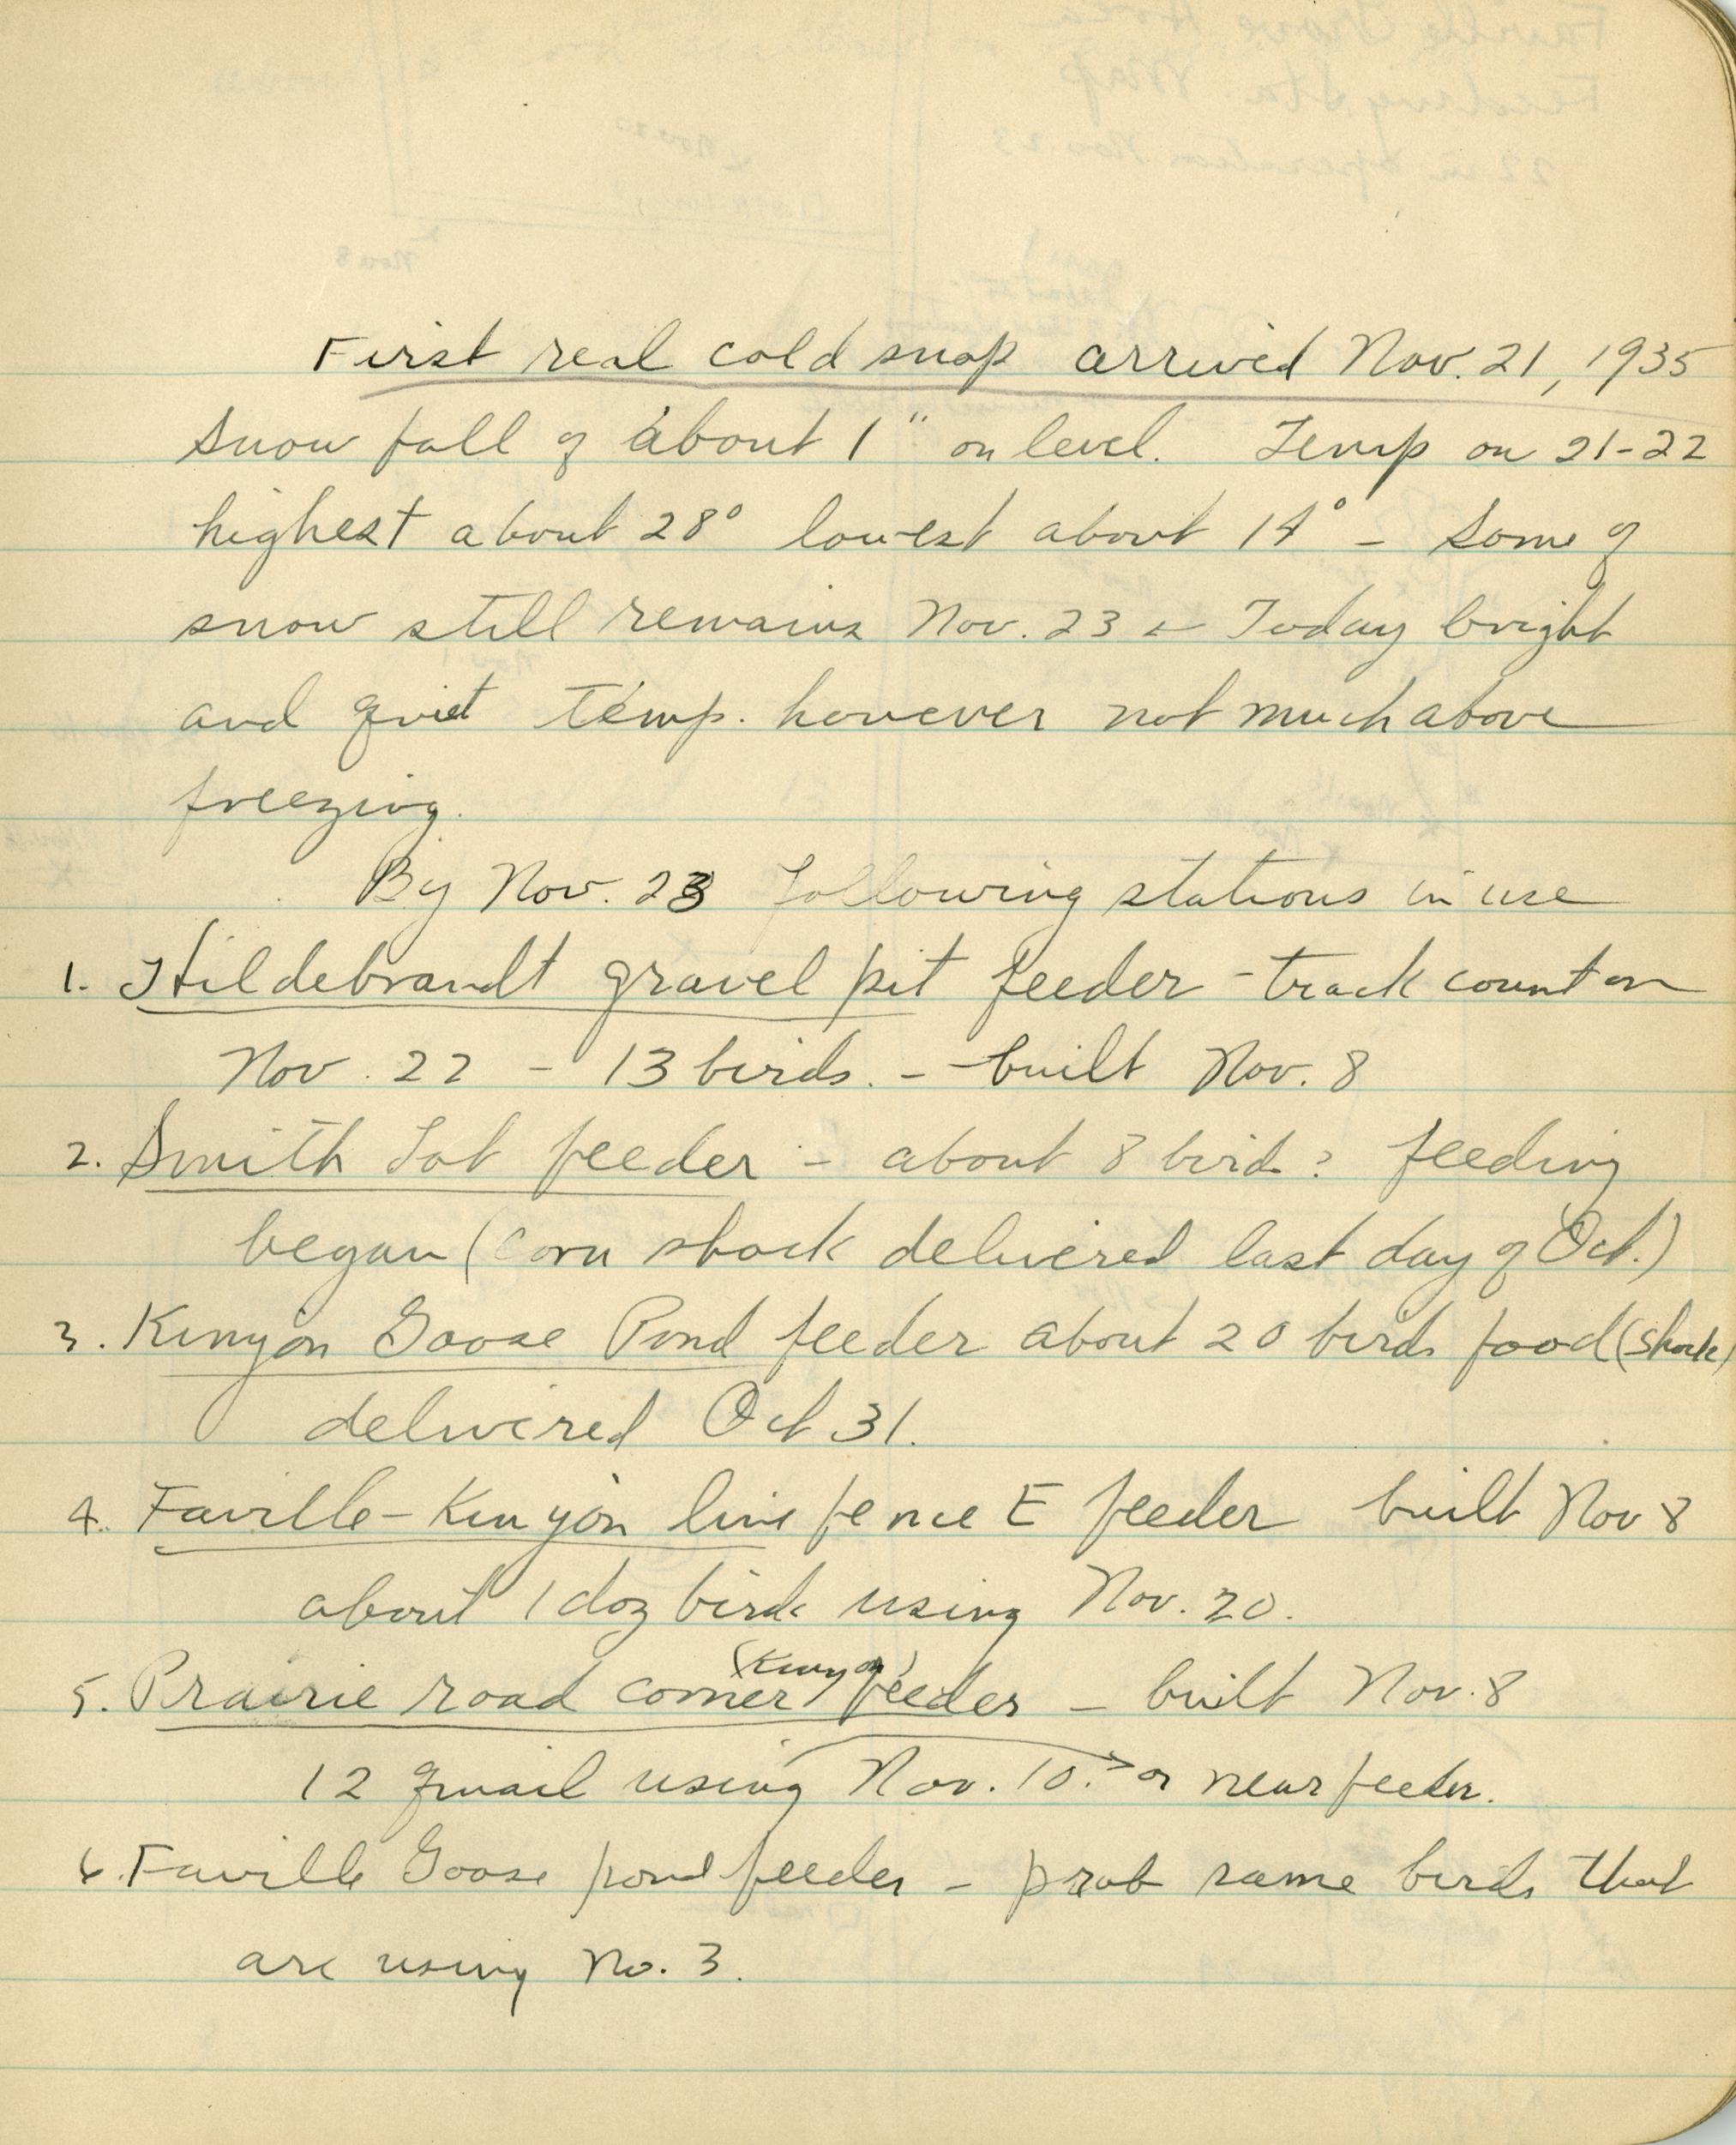 First real cold snap arrived Nov. 21, 1935
Snow fall of about 1" on level. Temp on 21-22
highest about 28° lowest about 14° - Some of
snow still remains Nov. 23 - Today bright
and quiet Temp. however not much above
freezing.
By Nov. 23 following stations in use
1. Hildebrandt gravel pit feeder - track count on
Nov. 22 - 13 birds. - built Nov. 8
2. Smith Lot feeder - about 8 birds? feeding
began (corn shock delivered last day of Oct.)
3. Kenyon Goose Pond feeder about 20 birds food (shock)
delivered Oct 31.
4. Faville-Kenyon line fence E feeder built Nov 8
about 1 doz birds using Nov. 20.
5. Prairie road corner (Kenyon) feeder - built Nov. 8
12 quail using Nov. 10. or near feeder.
6. Faville Goose pond feeder - prob same birds that
are using No. 3.